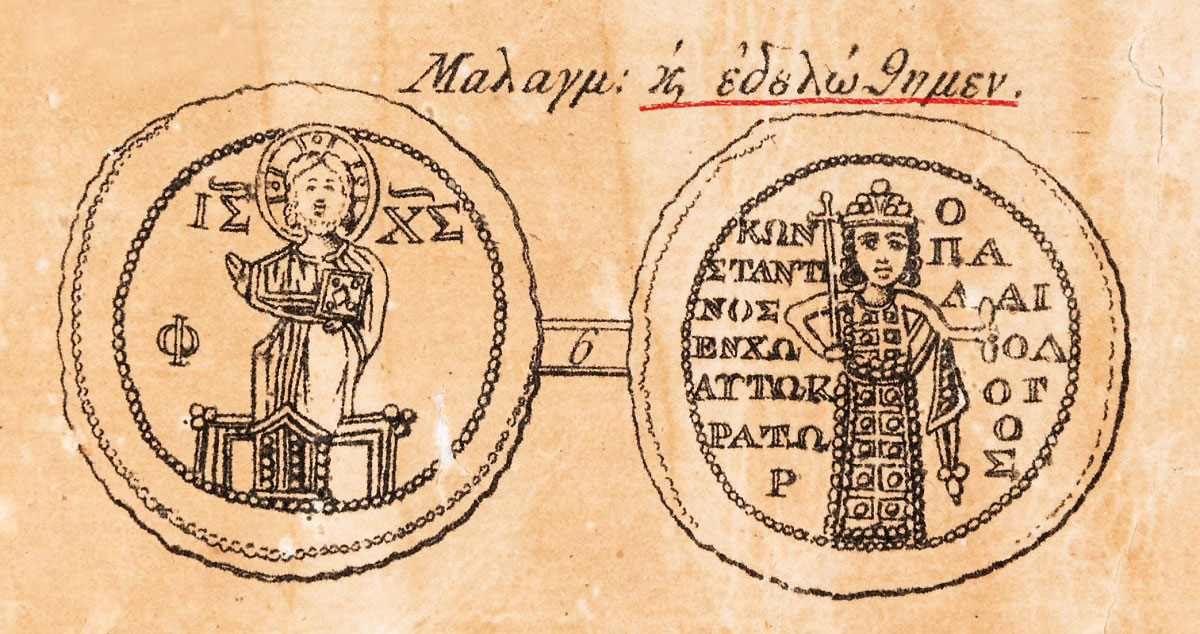 Μαλαγμ: ϗ̀ ἐδȣλώθημεν.
ΙΣ ΧΣ
Φ
6
ΚΩΝ
ΣΤΑΝΤΙ
ΝΟΣ
ΕΝΧΩ
ΑΥΤΩΚ
ΡΑΤΩ
Ρ
Ο
ΠΑ
ΛΑΙ
ΟΛ
ΟΓ
Ο
Σ